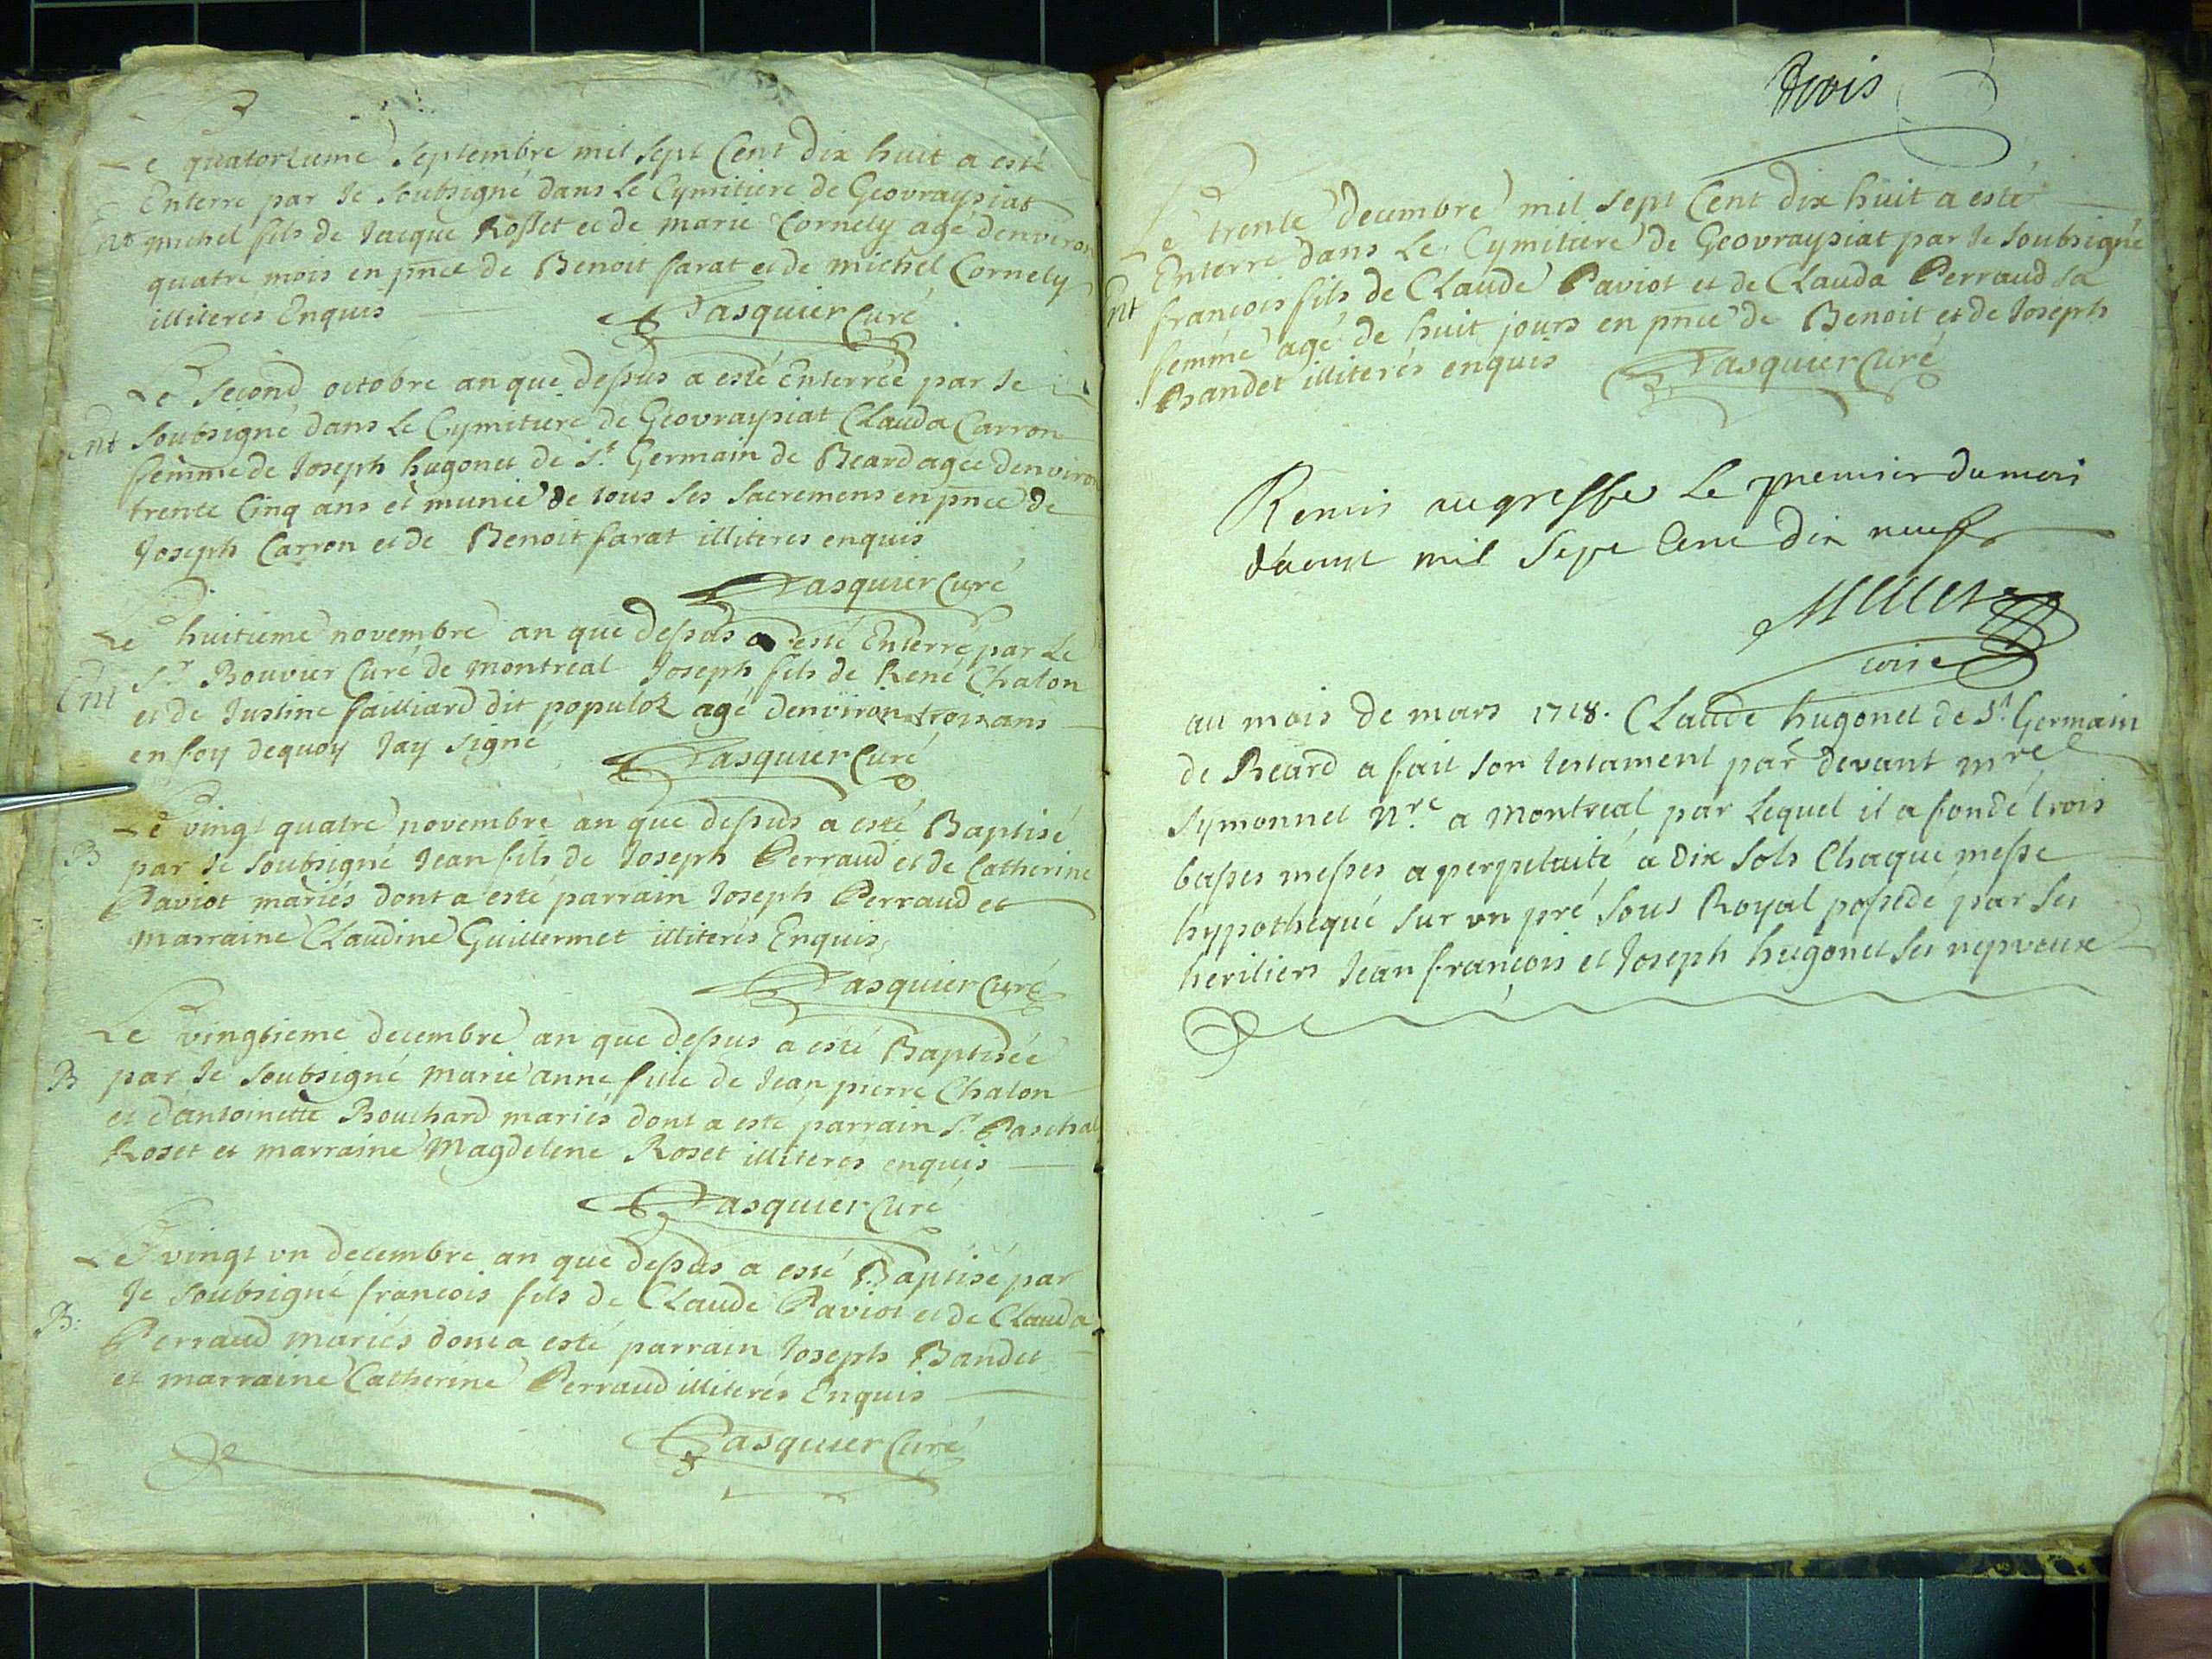 Le quatorzieme septembre mil sept cent dix huit a esté
Enterré par Je soubsigné dans Le Cymitiere de Geovraysiat
Ent michel fils de Jacque Rosset et de marie Cornely agé denviron
quatre mois en pnce de Benoit farat et de michel Cornely
illiterés Enquis
Pasquier Curé
Le second octobre an que dessus a esté Enterrée par Je
Ent soubsigné dans Le Cymitiere de Geovraysiat Clauda Carron
femme de Joseph hugonet de St Germain de Beard agée denviron
trente Cinq ans et munie de tous ses sacremens en pnce de
Joseph Carron et de Benoit farat illiteres enquis
Pasquier Curé
Le huitieme novembre an que dessus a esté Enterré par Le
Ent Sr Bouvier Curé de montreal Joseph fils de René Chalon
et de Justine failliard dit populoz agé denviron trois ans
en foy dequoy Jay signé
Pasquier Curé
Le vingt quatre novembre an que dessus a esté Baptisé
B par Je soubsigné Jean fils de Joseph Perraud et de Catherine
Paviot mariés dont a esté parrain Joseph Perraud et
marraine Claudine Guillermet illiterés Enquis
Pasquier Curé
Le vingtieme decembre an que dessus a esté Baptisée
B par Je soubsigné marie anne fille de Jean pierre Chalon
et dantoinette Bouchard mariés dont a esté parrain Sr Paschal
Roset et marraine Magdelene Roset illiterés enquis
Pasquier Curé
Le vingt vn decembre an que dessus a esté Baptisé par
B: Je soubsigné francois fils de Claude Paviot et de Clauda
Perraud mariés dont a esté parrain Joseph Bandet
et marraine Catherine Perraud illiterés Enquis
Pasquier Curé
trois
Le trente decembre mil sept Cent dix huit a esté
Enterré dans Le Cymitiere de Geovraysiat par Je soubsigné
Ent françois fils de Claude Paviot et de Clauda Perraud sa
femme agé de huit jours en pnce de Benoit et de Joseph
Bandet illiterés enquis
Pasquier Curé
Remis au greffe le premier du mois
d'aoust mil sept cent dix neuf
au mois de mars 1718. Claude hugonet de St Germain
de Beard a fait son testament par devant mre
Symonnet Nre a montreal par lequel il a fondé trois
basses messes a perpetuité a dix sols Chaque messe
hypothequé sur vn pré sous Royal possedé par ses
heritiers Jean françois et Joseph hugonet ses nepveux